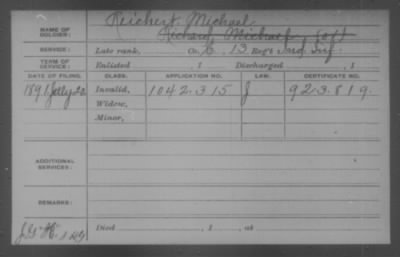 Reichert Michael
NAME OF SOLDIER: Richard Michael
SERVICE: Late rank, Co. 13 Reg't Inf.
TERM OF SERVICE: Enlisted , 1 Discharged , 1
DATE OF FILING. CLASS. APPLICATION NO. LAW. CERTIFICATE NO.
1891 July Invalid, 1042315 J 923.819.
Widow,
Minor,
ADDITIONAL SERVICES:
REMARKS:
Died , 1 , at